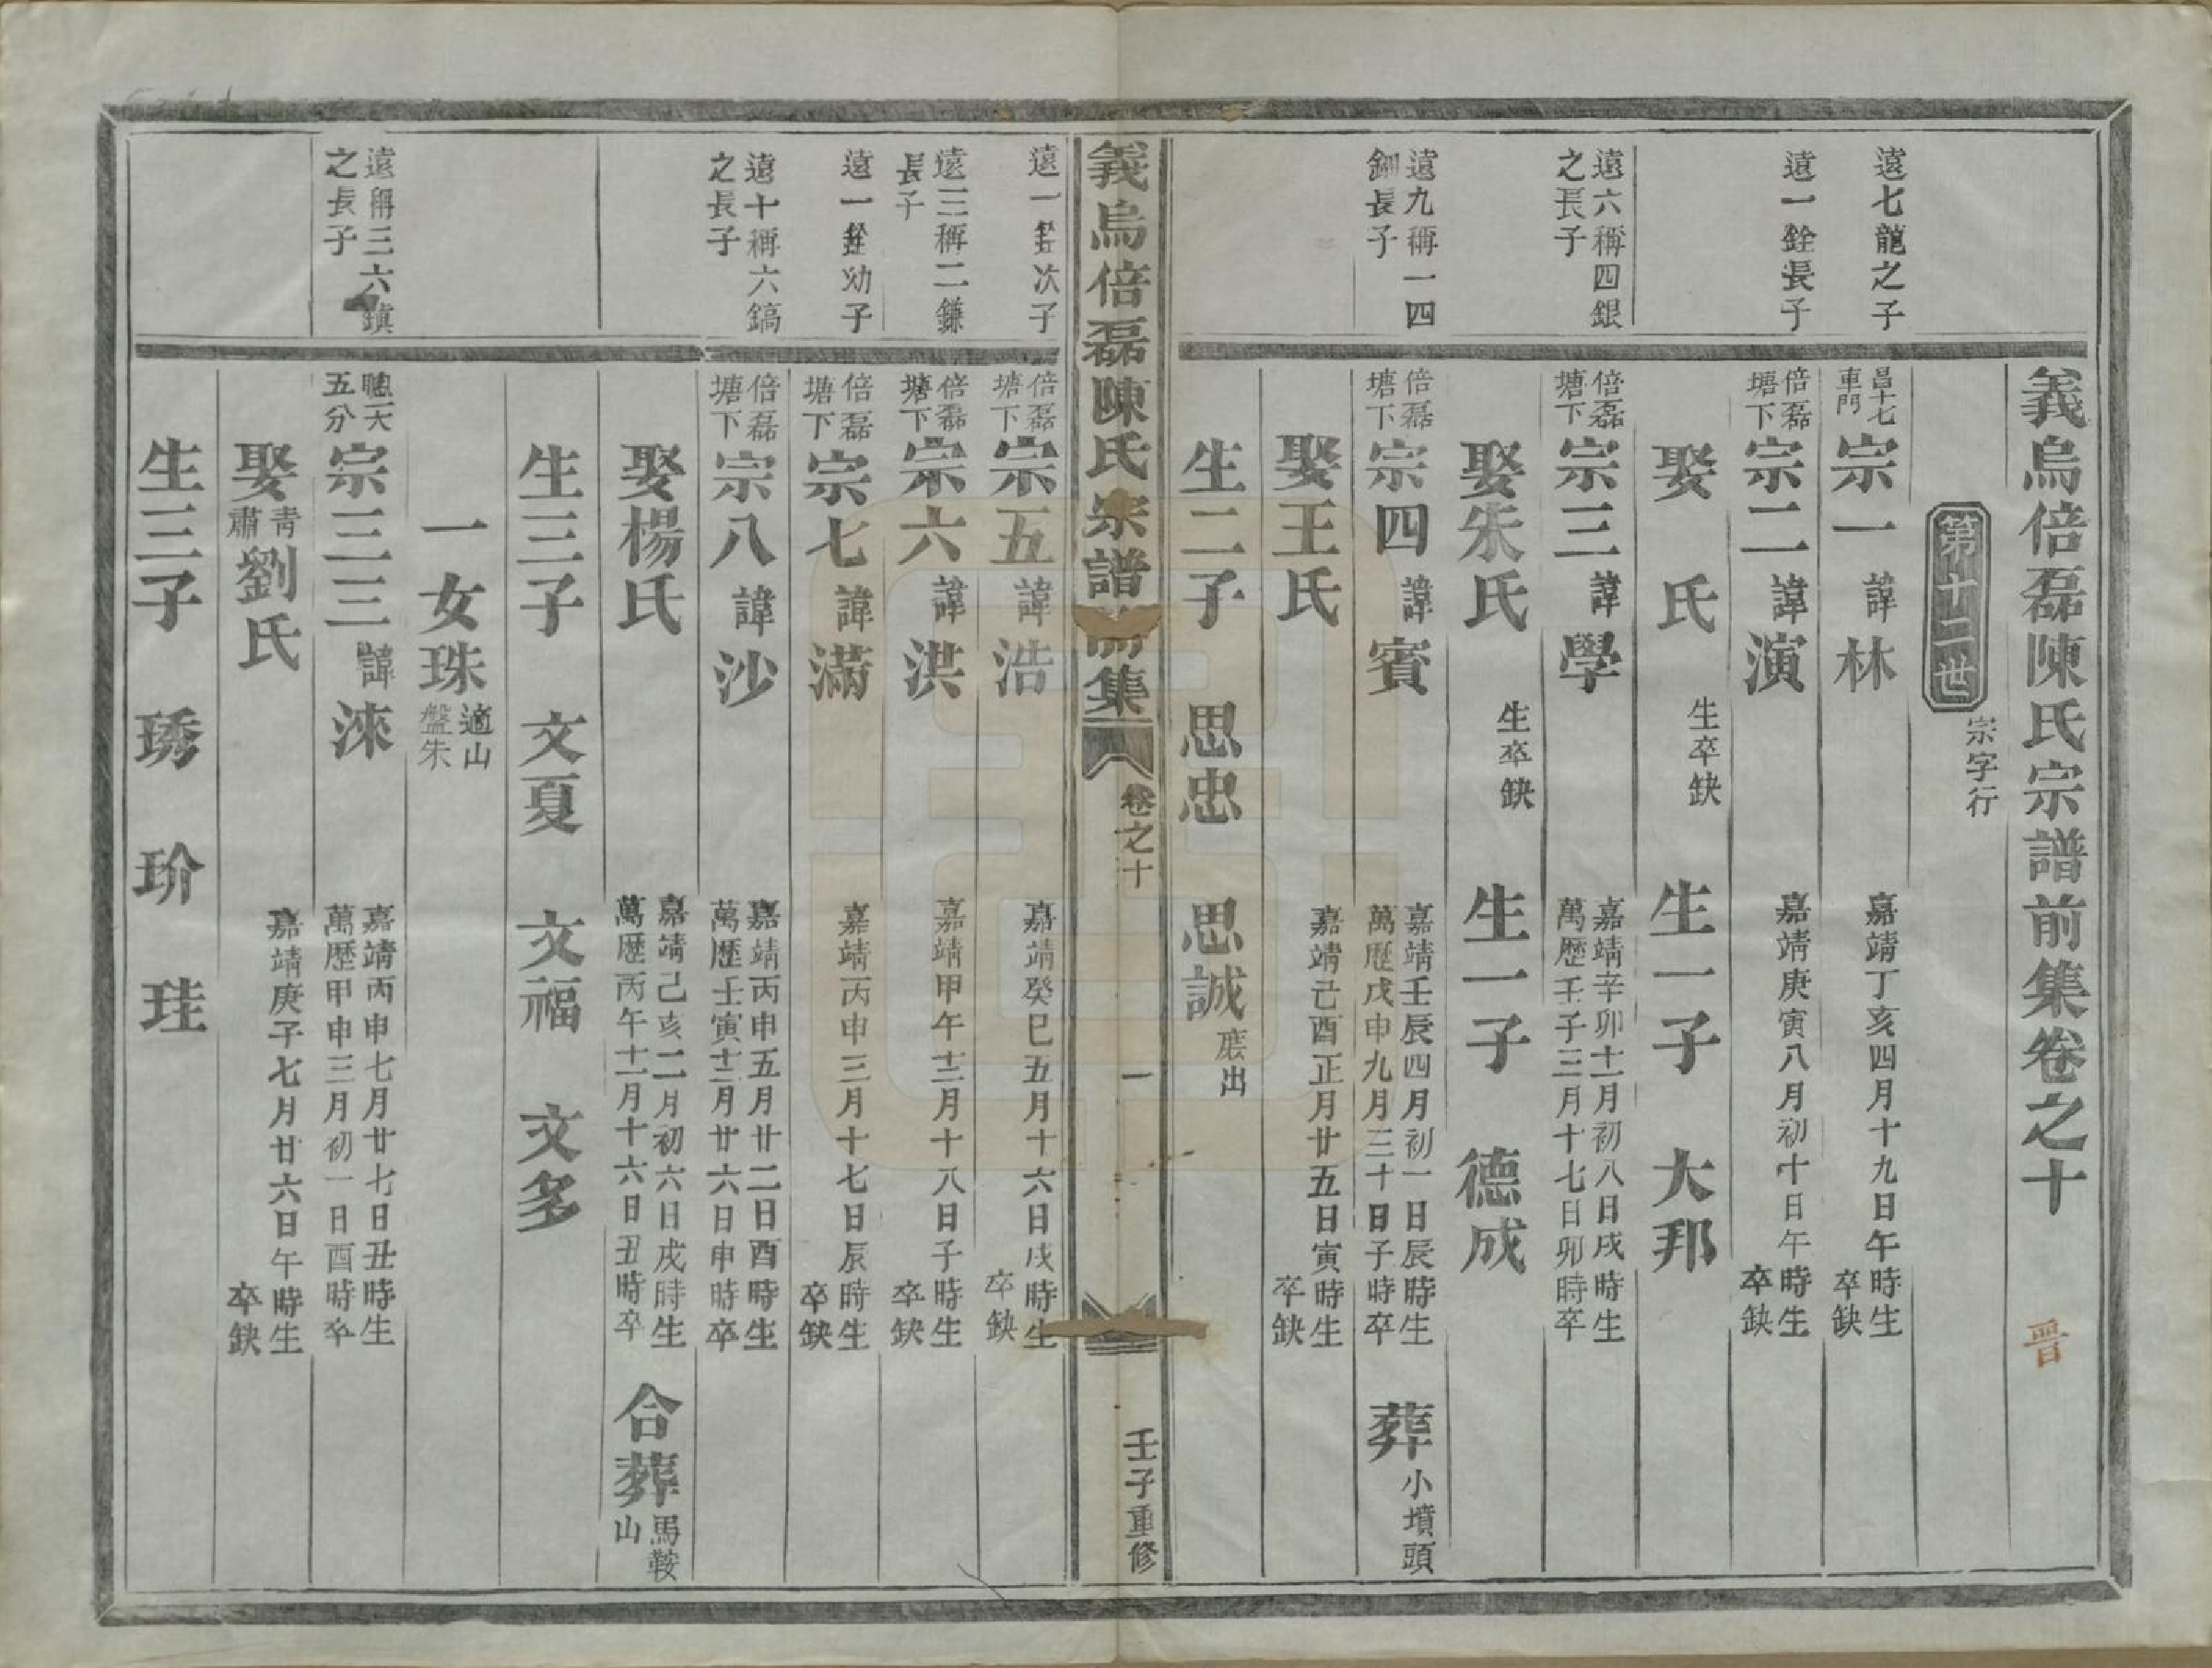 義烏倍磊陳氏宗譜前集卷之十 晋
第十二世 宗字行
遠七龍之子
昌十七車門 宗一 諱林 嘉靖丁亥四月十九日午時生 卒缺
遠一銓長子
倍磊塘下 宗二 諱演 嘉靖庚寅八月初十日午時生 卒缺
娶 氏 生卒缺 生一子 大邦
遠六稱四銀之長子
倍磊塘下 宗三 諱學 嘉靖辛卯十一月初八日戌時生 萬歷壬子三月十七日卯時卒
娶朱氏 生卒缺 生一子 德成
遠九稱一四鉶長子
倍磊塘下 宗四 諱賓 嘉靖壬辰四月初一日辰時生 萬歷戊申九月三十日子時卒 葬小墳頭
娶王氏 嘉靖己酉正月廿五日寅時生 卒缺
生二子 思忠 思誠 庶出
義烏倍磊陳氏宗譜前集 卷之十 一 壬子重修
遠一銓次子
倍磊塘下 宗五 諱浩 嘉靖癸巳五月十六日戌時生 卒缺
遠三稱二鎌長子
倍磊塘下 宗六 諱洪 嘉靖甲午十二月十八日子時生 卒缺
遠一銓幼子
倍磊塘下 宗七 諱滿 嘉靖丙申三月十七日辰時生 卒缺
遠十稱六鎬之長子
倍磊塘下 宗八 諱沙 嘉靖丙申五月廿二日酉時生 萬歷壬寅十二月廿六日申時卒
娶楊氏 嘉靖己亥二月初六日戌時生 萬歷丙午十一月十六日丑時卒 合葬馬鞍山
生三子 文夏 文福 文多
一女珠 適山盤朱
遠稱三六鎮之長子
聰一天五分 宗三三 諱淶 嘉靖丙申七月廿七日丑時生 萬歷甲申三月初一日酉時卒
娶青肅劉氏 嘉靖庚子七月廿六日午時生 卒缺
生三子 琇 玠 珪